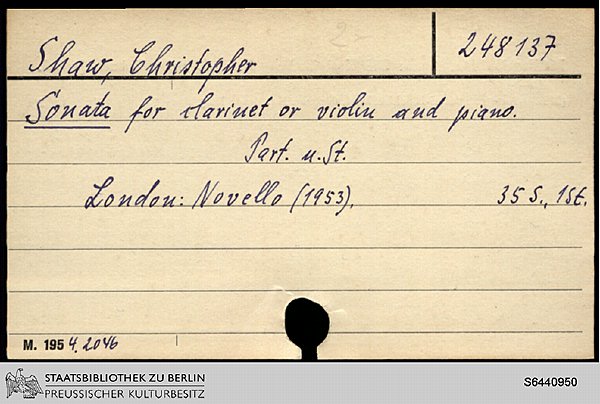 Shaw, Christopher
248137
Sonata for clarinet or violin and piano.
Part. u. St.
London: Novello (1953).
35 S., 1 St.
M. 1954. 2046
STAATSBIBLIOTHEK ZU BERLIN
PREUSSISCHER KULTURBESITZ
S6440950